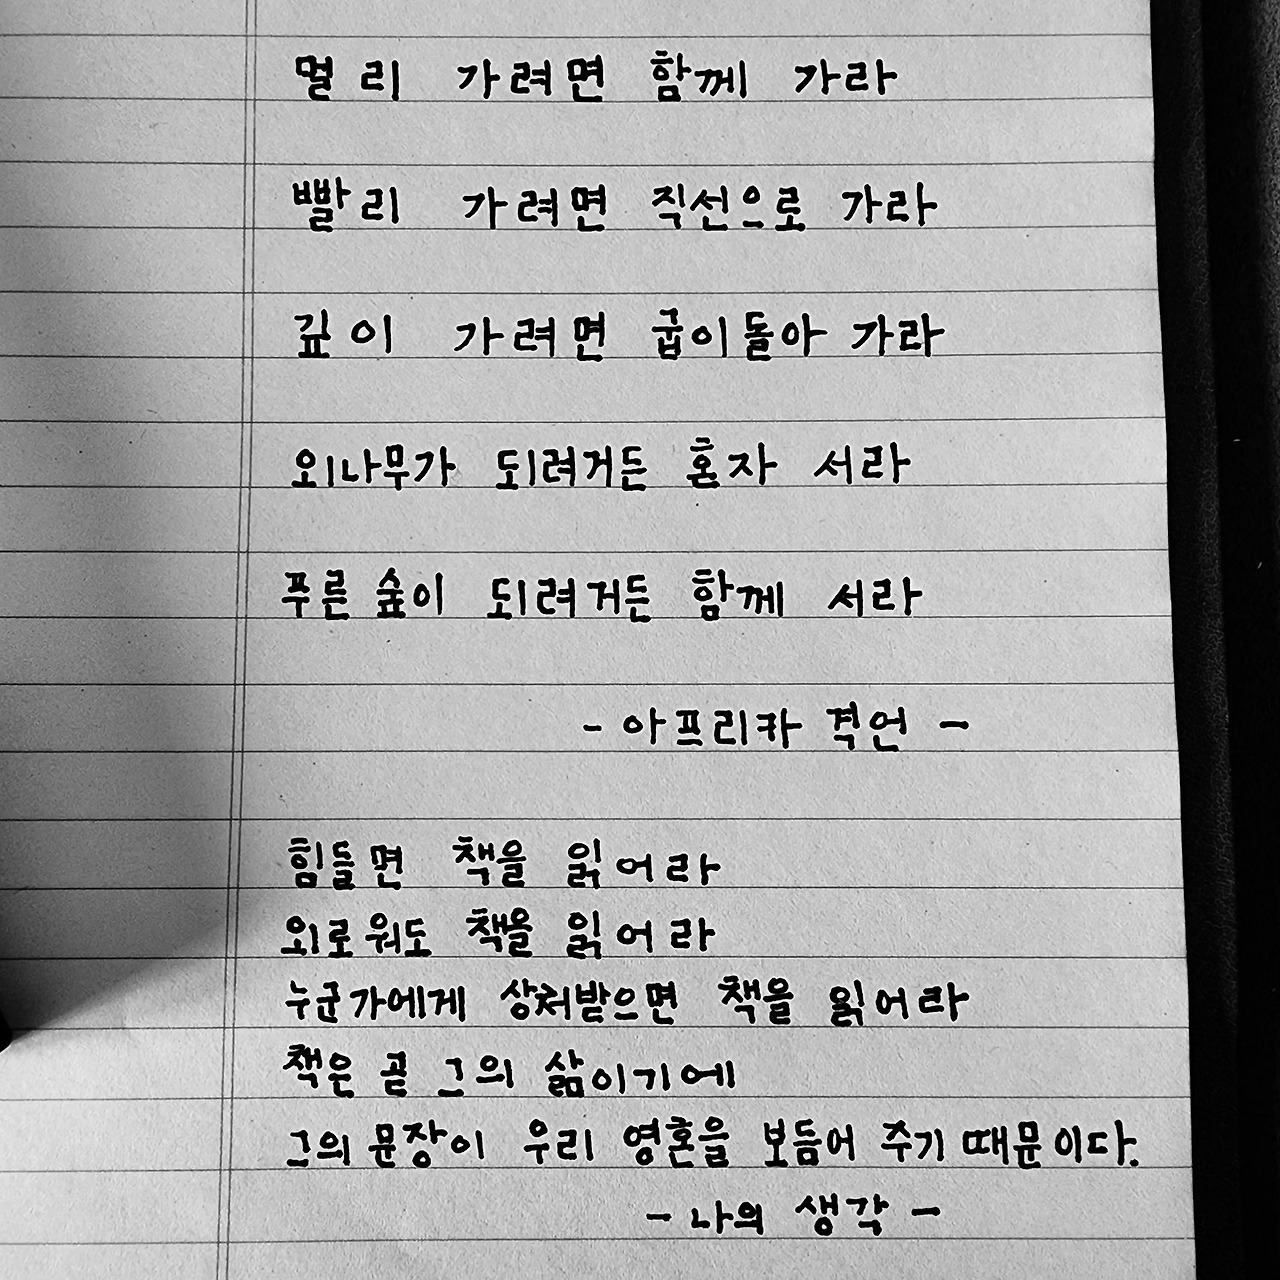 멀리 가려면 함께 가라
빨리 가려면 직선으로 가라
깊이 가려면 굽이돌아 가라
외나무가 되려거든 혼자 서라
푸른 숲이 되려거든 함께 서라
- 아프리카 격언 -
힘들면 책을 읽어라
외로워도 책을 읽어라
누군가에게 상처받으면 책을 읽어라
책은 곧 그의 삶이기에
그의 문장이 우리 영혼을 보듬어 주기 때문이다.
- 나의 생각 -